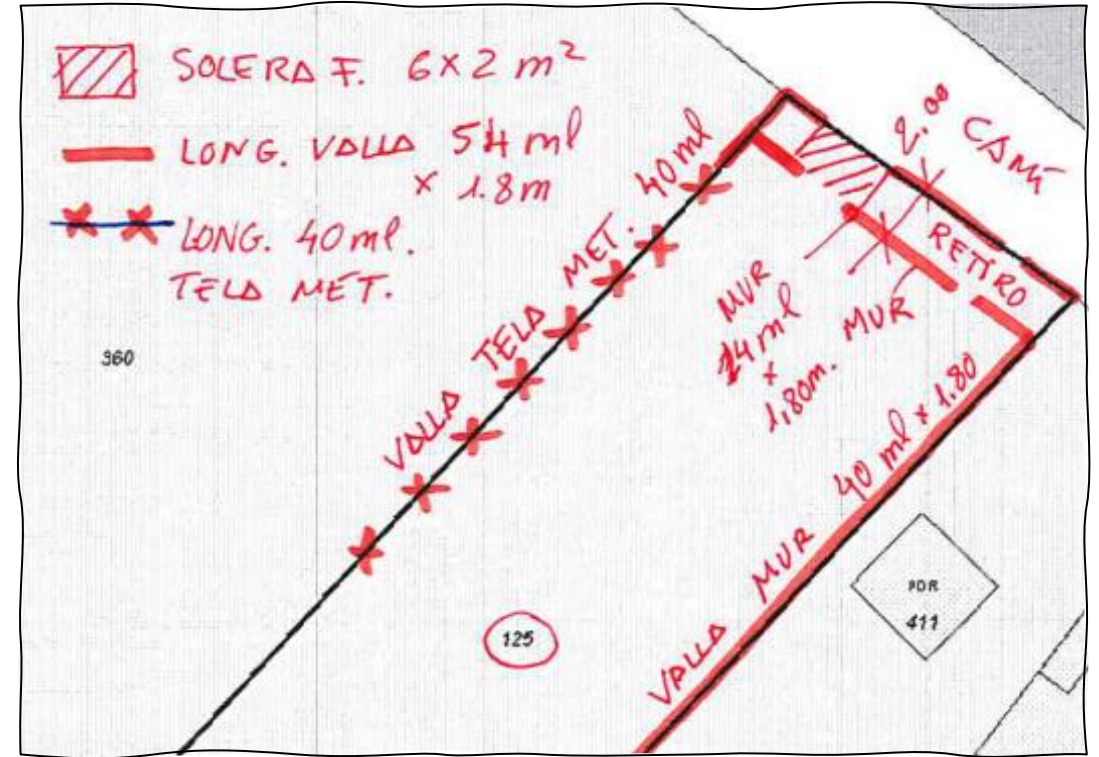 SOLERA F. 6x2 m²
LONG. VALLA 54 ml
x 1.8m
LONG. 40 ml.
TELA MET.
VALLA TELA MET. 40 ml
2.00 CAMÍ
RETIRO
MUR
MUR
14 ml
x
1,80m.
VALLA MUR 40 ml x 1.80
360
125
PDR
411